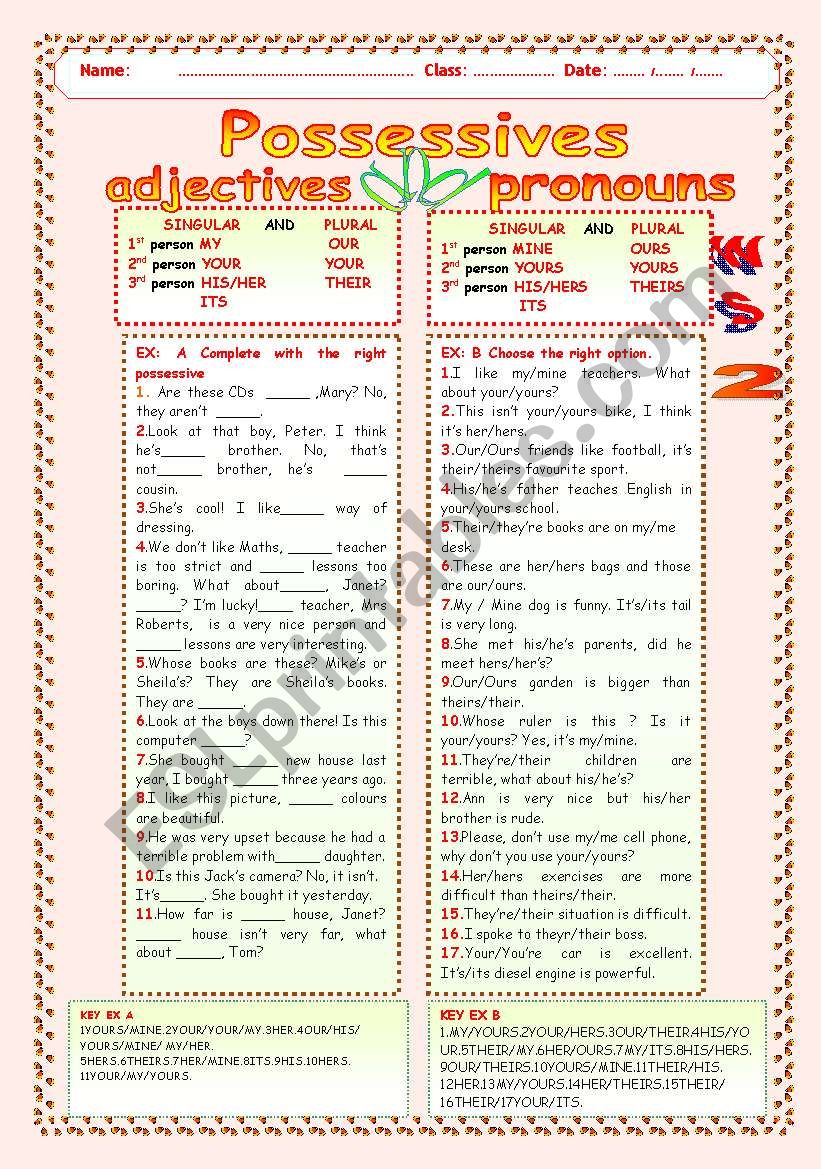 Name: ........................................................... Class: .................... Date: ........ /....... /.......
Possessives
adjectives pronouns
SINGULAR AND PLURAL
1st person MY OUR
2nd person YOUR YOUR
3rd person HIS/HER THEIR
ITS
SINGULAR AND PLURAL
1st person MINE OURS
2nd person YOURS YOURS
3rd person HIS/HERS THEIRS
ITS
WS
2
EX: A Complete with the right
possessive
1. Are these CDs _____ ,Mary? No,
they aren't _____.
2.Look at that boy, Peter. I think
he's_____ brother. No, that's
not_____ brother, he's _____
cousin.
3.She's cool! I like_____ way of
dressing.
4.We don't like Maths, _____ teacher
is too strict and _____ lessons too
boring. What about_____, Janet?
_____? I'm lucky!____ teacher, Mrs
Roberts, is a very nice person and
_____ lessons are very interesting.
5.Whose books are these? Mike's or
Sheila's? They are Sheila's books.
They are _____.
6.Look at the boys down there! Is this
computer _____?
7.She bought _____ new house last
year, I bought _____ three years ago.
8.I like this picture, _____ colours
are beautiful.
9.He was very upset because he had a
terrible problem with_____ daughter.
10.Is this Jack's camera? No, it isn't.
It's_____. She bought it yesterday.
11.How far is _____ house, Janet?
_____ house isn't very far, what
about _____, Tom?
EX: B Choose the right option.
1.I like my/mine teachers. What
about your/yours?
2.This isn't your/yours bike, I think
it's her/hers.
3.Our/Ours friends like football, it's
their/theirs favourite sport.
4.His/he's father teaches English in
your/yours school.
5.Their/they're books are on my/me
desk.
6.These are her/hers bags and those
are our/ours.
7.My / Mine dog is funny. It's/its tail
is very long.
8.She met his/he's parents, did he
meet hers/her's?
9.Our/Ours garden is bigger than
theirs/their.
10.Whose ruler is this ? Is it
your/yours? Yes, it's my/mine.
11.They're/their children are
terrible, what about his/he's?
12.Ann is very nice but his/her
brother is rude.
13.Please, don't use my/me cell phone,
why don't you use your/yours?
14.Her/hers exercises are more
difficult than theirs/their.
15.They're/their situation is difficult.
16.I spoke to theyr/their boss.
17.Your/You're car is excellent.
It's/its diesel engine is powerful.
KEY EX A
1YOURS/MINE.2YOUR/YOUR/MY.3HER.4OUR/HIS/
YOURS/MINE/ MY/HER.
5HERS.6THEIRS.7HER/MINE.8ITS.9HIS.10HERS.
11YOUR/MY/YOURS.
KEY EX B
1.MY/YOURS.2YOUR/HERS.3OUR/THEIR.4HIS/YO
UR.5THEIR/MY.6HER/OURS.7MY/ITS.8HIS/HERS.
9OUR/THEIRS.10YOURS/MINE.11THEIR/HIS.
12HER.13MY/YOURS.14HER/THEIRS.15THEIR/
16THEIR/17YOUR/ITS.
ESLprintables.com